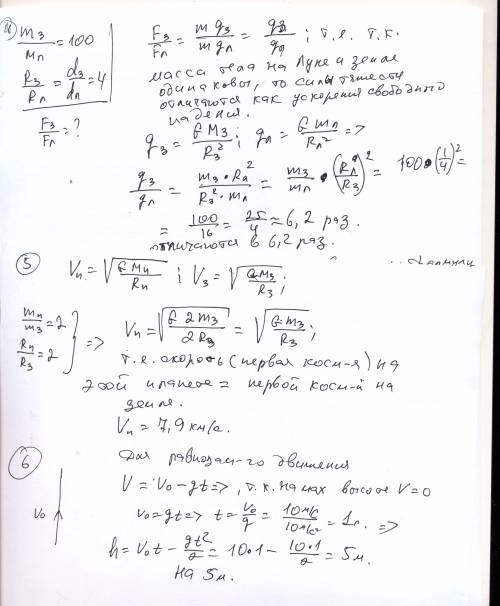 4) m₃/mₙ = 100
R₃/Rₙ = d₃/dₙ = 4
F₃/Fₙ = ?
F₃/Fₙ = m g₃/m gₙ = g₃/gₙ ; т.е. т.к.
масса тела на Луне и земле
одинаковы, то силы тяжести
отличаются как ускорения свободного
падения.
g₃ = G M₃/R₃² ; gₙ = G mₙ/Rₙ² =>
g₃/gₙ = m₃·Rₙ²/R₃²·mₙ = m₃/mₙ · (Rₙ/R₃)² = 100·(1/4)² =
= 100/16 = 25/4 ≈ 6,2 раз.
отличаются в 6,2 раз.
5 Vₙ = √(G Mₙ/Rₙ) ; V₃ = √(G M₃/R₃) ;
mₙ/m₃ = 2
Rₙ/R₃ = 2 } => Vₙ = √(G 2m₃/2R₃) = √(G m₃/R₃) ;
т.е. скорость (первая косм-я) на
этой планете = первой косм-й на
земле.
Vₙ = 7,9 км/с.
6 Для равнозам-го движения
V = V₀ - gt =>, т.к. на мах высоте V = 0
V₀
v₀ = gt => t = v₀/g = 10 м/с/10 м/с² = 1с. =>
h = v₀t - gt²/2 = 10·1 - 10·1/2 = 5 м.
на 5 м.